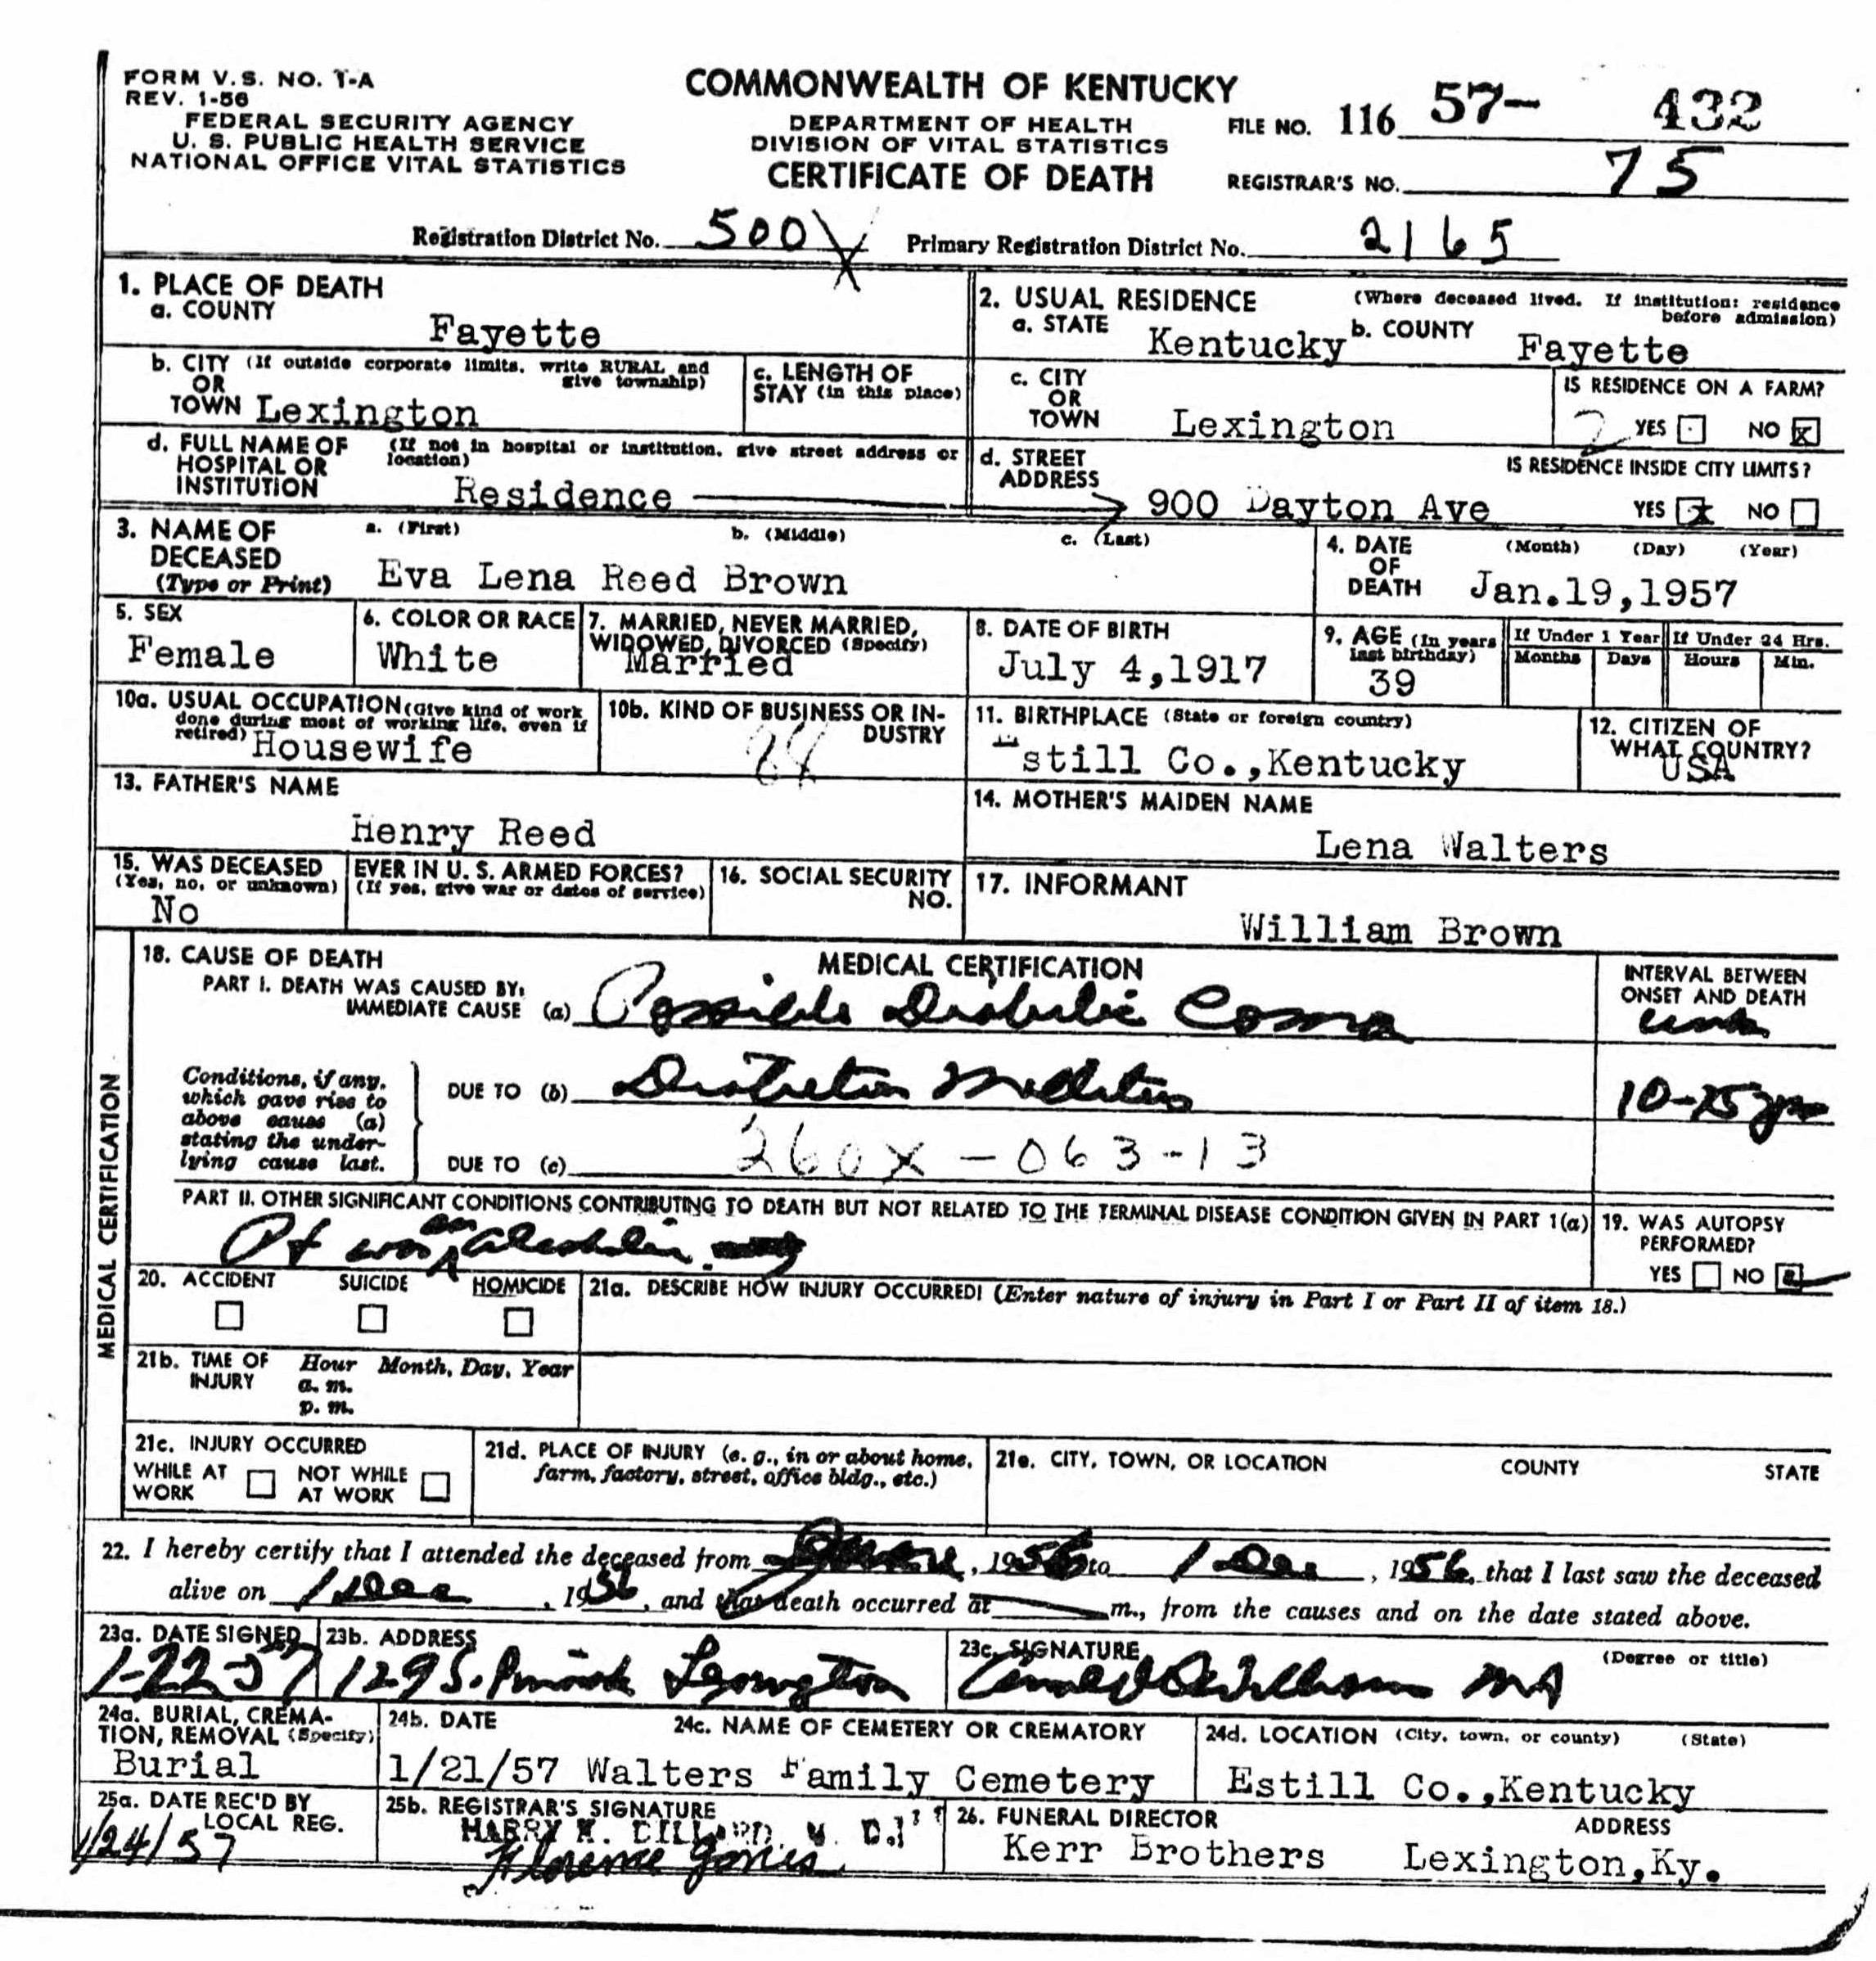 FORM V. S. NO. 1-A
REV. 1-56
FEDERAL SECURITY AGENCY
U. S. PUBLIC HEALTH SERVICE
NATIONAL OFFICE VITAL STATISTICS
COMMONWEALTH OF KENTUCKY
DEPARTMENT OF HEALTH
DIVISION OF VITAL STATISTICS
CERTIFICATE OF DEATH
FILE NO. 116 57- 432
REGISTRAR'S NO. 75
Registration District No. 500 X Primary Registration District No. 2165
1. PLACE OF DEATH
a. COUNTY
Fayette
b. CITY (If outside corporate limits, write RURAL and
OR give township)
TOWN Lexington
c. LENGTH OF
STAY (in this place)
d. FULL NAME OF (If not in hospital or institution, give street address or
HOSPITAL OR location)
INSTITUTION Residence
2. USUAL RESIDENCE (Where deceased lived. If institution: residence
before admission)
a. STATE Kentucky b. COUNTY Fayette
c. CITY
OR
TOWN Lexington
IS RESIDENCE ON A FARM?
2 YES NO x
d. STREET
ADDRESS 900 Dayton Ave
IS RESIDENCE INSIDE CITY LIMITS?
YES x NO
3. NAME OF a. (First) b. (Middle) c. (Last)
DECEASED
(Type or Print) Eva Lena Reed Brown
4. DATE (Month) (Day) (Year)
OF
DEATH Jan.19,1957
5. SEX
Female
6. COLOR OR RACE
White
7. MARRIED, NEVER MARRIED,
WIDOWED, DIVORCED (Specify)
Married
8. DATE OF BIRTH
July 4,1917
9. AGE (In years
last birthday)
39
If Under 1 Year If Under 24 Hrs.
Months Days Hours Min.
10a. USUAL OCCUPATION (Give kind of work
done during most of working life, even if
retired) Housewife
10b. KIND OF BUSINESS OR IN-
DUSTRY
11. BIRTHPLACE (State or foreign country)
Estill Co.,Kentucky
12. CITIZEN OF
WHAT COUNTRY?
USA
13. FATHER'S NAME
Henry Reed
14. MOTHER'S MAIDEN NAME
Lena Walters
15. WAS DECEASED EVER IN U. S. ARMED FORCES?
(Yes, no, or unknown) (If yes, give war or dates of service)
No
16. SOCIAL SECURITY
NO.
17. INFORMANT
William Brown
MEDICAL CERTIFICATION
18. CAUSE OF DEATH
MEDICAL CERTIFICATION
PART I. DEATH WAS CAUSED BY:
IMMEDIATE CAUSE (a) Possible Diabetic Coma
INTERVAL BETWEEN
ONSET AND DEATH
unk
Conditions, if any,
which gave rise to
above cause (a)
stating the under-
lying cause last.
DUE TO (b) Diabetes Mellitus
10-15 yrs
DUE TO (c) 260X - 063-13
PART II. OTHER SIGNIFICANT CONDITIONS CONTRIBUTING TO DEATH BUT NOT RELATED TO THE TERMINAL DISEASE CONDITION GIVEN IN PART 1(a)
Pt was an alcoholic.
19. WAS AUTOPSY
PERFORMED?
YES NO
20. ACCIDENT SUICIDE HOMICIDE
21a. DESCRIBE HOW INJURY OCCURRED! (Enter nature of injury in Part I or Part II of item 18.)
21b. TIME OF Hour Month, Day, Year
INJURY a. m.
p. m.
21c. INJURY OCCURRED
WHILE AT NOT WHILE
WORK AT WORK
21d. PLACE OF INJURY (e. g., in or about home,
farm, factory, street, office bldg., etc.)
21e. CITY, TOWN, OR LOCATION COUNTY STATE
22. I hereby certify that I attended the deceased from , 1956 to 1 Dec , 1956, that I last saw the deceased
alive on 1 Dec , 1956, and that death occurred at m., from the causes and on the date stated above.
23a. DATE SIGNED
1-22-57
23b. ADDRESS
Lexington
23c. SIGNATURE (Degree or title)
MD
24a. BURIAL, CREMA-
TION, REMOVAL (Specify)
Burial
24b. DATE
1/21/57
24c. NAME OF CEMETERY OR CREMATORY
Walters Family Cemetery
24d. LOCATION (City, town, or county) (State)
Estill Co.,Kentucky
25a. DATE REC'D BY
LOCAL REG.
1/24/57
25b. REGISTRAR'S SIGNATURE
HARRY K. DILLARD, M. D.
Florence Jones
26. FUNERAL DIRECTOR ADDRESS
Kerr Brothers Lexington,Ky.